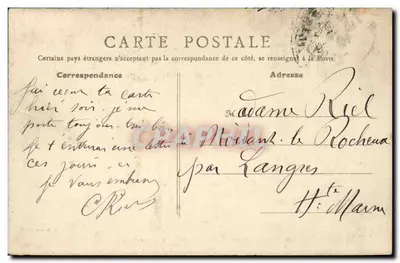 CARTE POSTALE
Certains pays étrangers n'acceptant pas la correspondance de ce côté, se renseigner à la Poste.
Correspondance
Adresse
J'ai reçu ta carte
hier soir. je me
porte toujours très bien
je t'enverrai une lettre
ces jours, et
je vous embrasse
Madame Riel
à Noidant-le-Rocheux
par Langres
Hte Marne